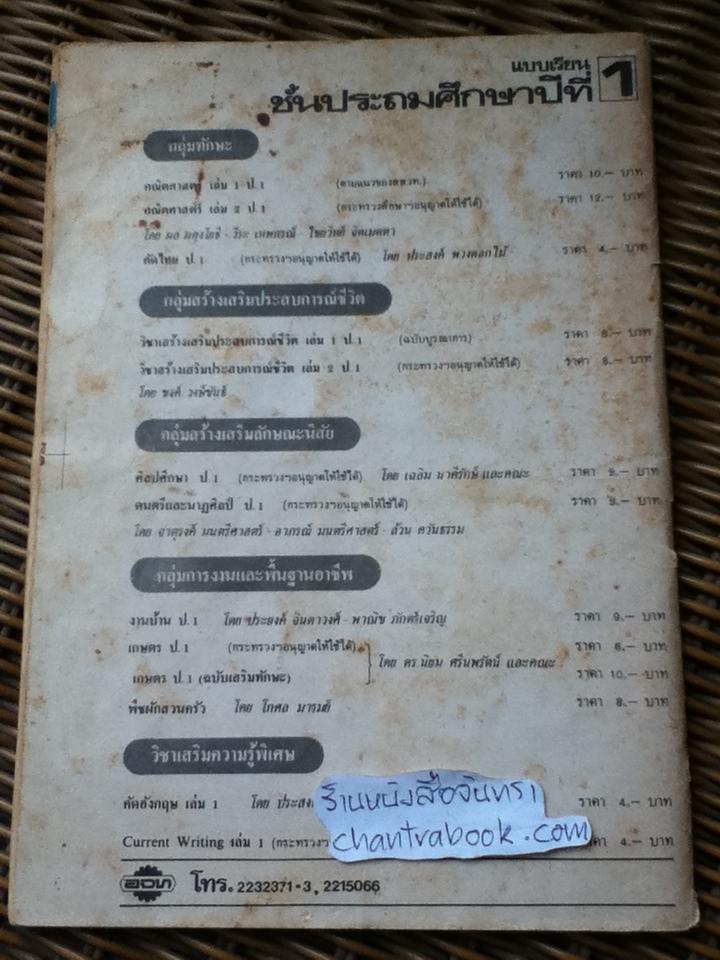 แบบเรียน
ชั้นประถมศึกษาปีที่ 1
กลุ่มทักษะ
คณิตศาสตร์ เล่ม 1 ป.1 (ตามแนวของสสวท.) ราคา 10.– บาท
คณิตศาสตร์ เล่ม 2 ป.1 (กระทรวงศึกษาฯอนุญาตให้ใช้ได้) ราคา 12.– บาท
โดย
คัดไทย ป.1 (กระทรวงฯอนุญาตให้ใช้ได้) โดย ประสงค์ พวงดอกไม้ ราคา 4.– บาท
กลุ่มสร้างเสริมประสบการณ์ชีวิต
วิชาสร้างเสริมประสบการณ์ชีวิต เล่ม 1 ป.1 (ฉบับบูรณาการ) ราคา 8.– บาท
วิชาสร้างเสริมประสบการณ์ชีวิต เล่ม 2 ป.1 (กระทรวงฯอนุญาตให้ใช้ได้) ราคา 8.– บาท
โดย
กลุ่มสร้างเสริมลักษณะนิสัย
ศิลปศึกษา ป.1 (กระทรวงฯอนุญาตให้ใช้ได้) โดย เฉลิม นาคีรักษ์ และคณะ ราคา 9.– บาท
ดนตรีและนาฏศิลป์ ป.1 (กระทรวงฯอนุญาตให้ใช้ได้) ราคา 9.– บาท
โดย จาตุรงค์ มนตรีศาสตร์ - อาภรณ์ มนตรีศาสตร์ - ล้วน ควันธรรม
กลุ่มการงานและพื้นฐานอาชีพ
งานบ้าน ป.1 โดย ประยงค์ จินดาวงศ์ - พาณิช ภักดิ์เจริญ ราคา 9.– บาท
เกษตร ป.1 (กระทรวงฯอนุญาตให้ใช้ได้) ราคา 6.– บาท
โดย ดร.นิยม ศรีนพรัตน์ และคณะ
เกษตร ป.1 (ฉบับเสริมทักษะ) ราคา 10.– บาท
พืชผักสวนครัว โดย โกศล ราคา 8.– บาท
วิชาเสริมความรู้พิเศษ
คัดอังกฤษ เล่ม 1 โดย ประสง ราคา 4.– บาท
Current Writing เล่ม 1 (กระทรวงฯ 4.– บาท
ร้านหนังสือจันทรา
chantrabook.com
อจท โทร. 2232371-3, 2215066